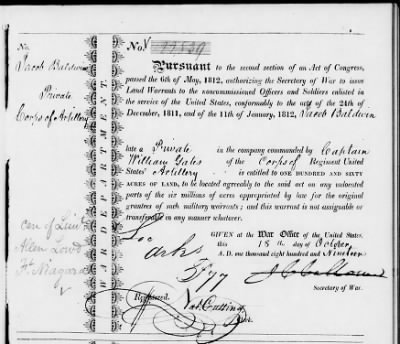 No.
Jacob Baldwin
Private
Corps of Artillery
care of Lieut
Allen Lowd
Ft. Niagara
WAR DEPARTMENT.
No.
Pursuant to the second section of an Act of Congress,
passed the 6th of May, 1812, authorizing the Secretary of War to issue
Land Warrants to the noncommissioned Officers and Soldiers enlisted in
the service of the United States, conformably to the acts of the 24th of
December, 1811, and of the 11th of January, 1812, Jacob Baldwin
late a Private in the company commanded by Captain
William Gates of the Corps of Regiment United
States' Artillery is entitled to ONE HUNDRED AND SIXTY
ACRES OF LAND, to be located agreeably to the said act on any unlocated
part of the six millions of acres appropriated by law for the original
grantees of such military warrants; and this warrant is not assignable or
transferable in any manner whatever.
GIVEN at the War Office of the United States.
this 18th day of October
A. D. one thousand eight hundred and Nineteen
J C Calhoun
Secretary of War.
Registered.
Nat. Cutting